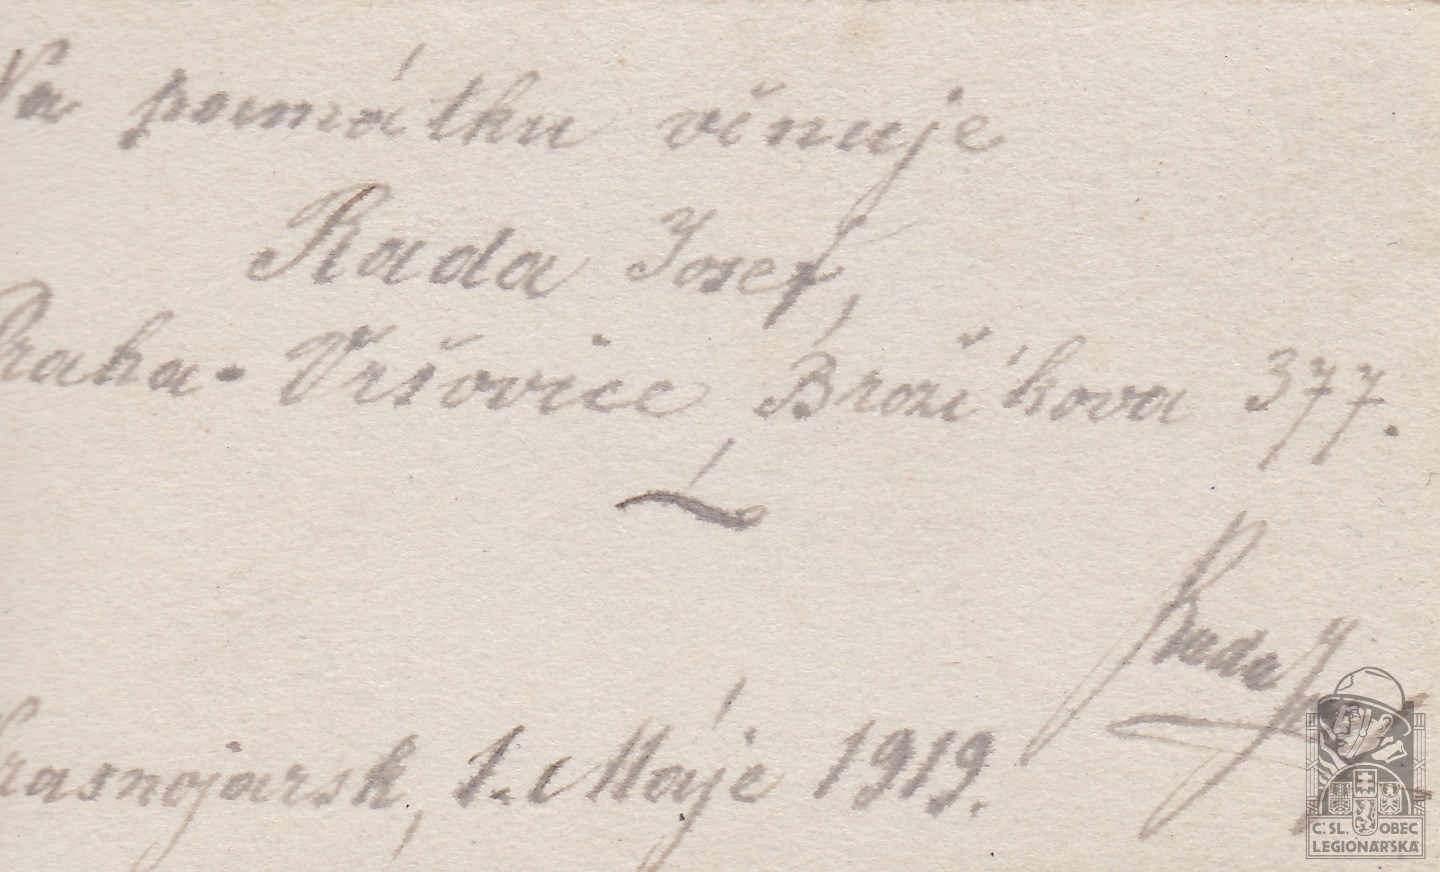 Na památku věnuje
Rada Josef,
Praha - Vršovice, Brožíkova 377.
Rada J
Krasnojarsk, 1. Máje 1919.
Č.SL. OBEC
LEGIONÁŘSKÁ